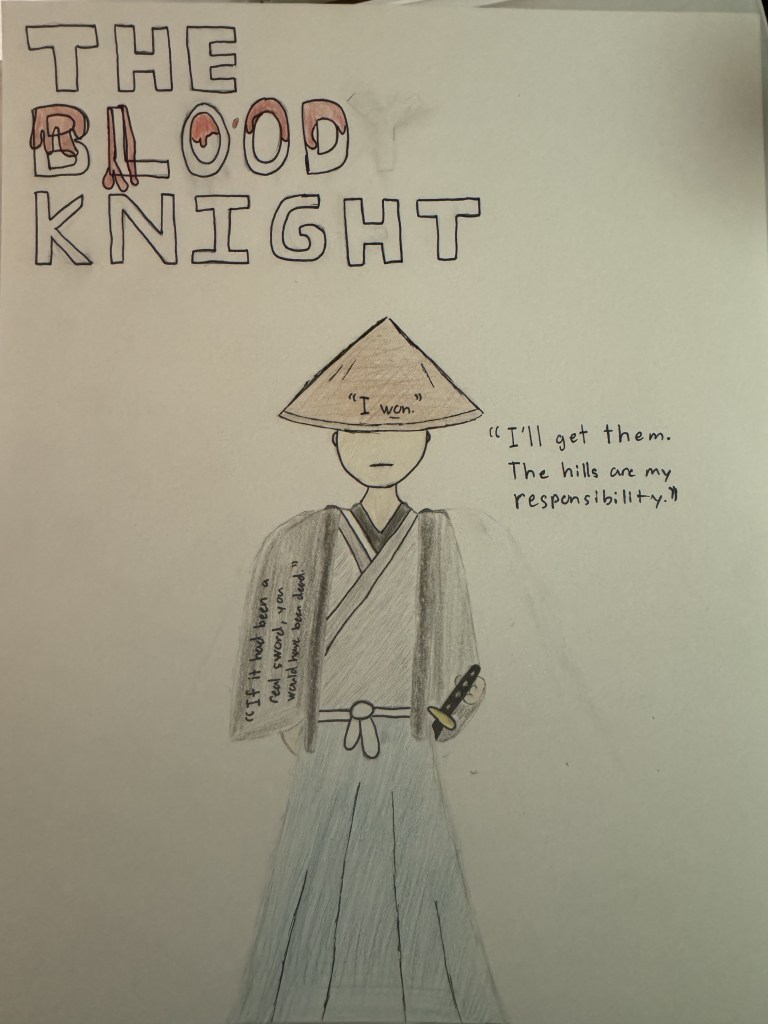 THE
BLOOD
KNIGHT
"I won."
"I'll get them.
The hills are my
responsibility."
"If it had been a
real sword, you
would have been dead."